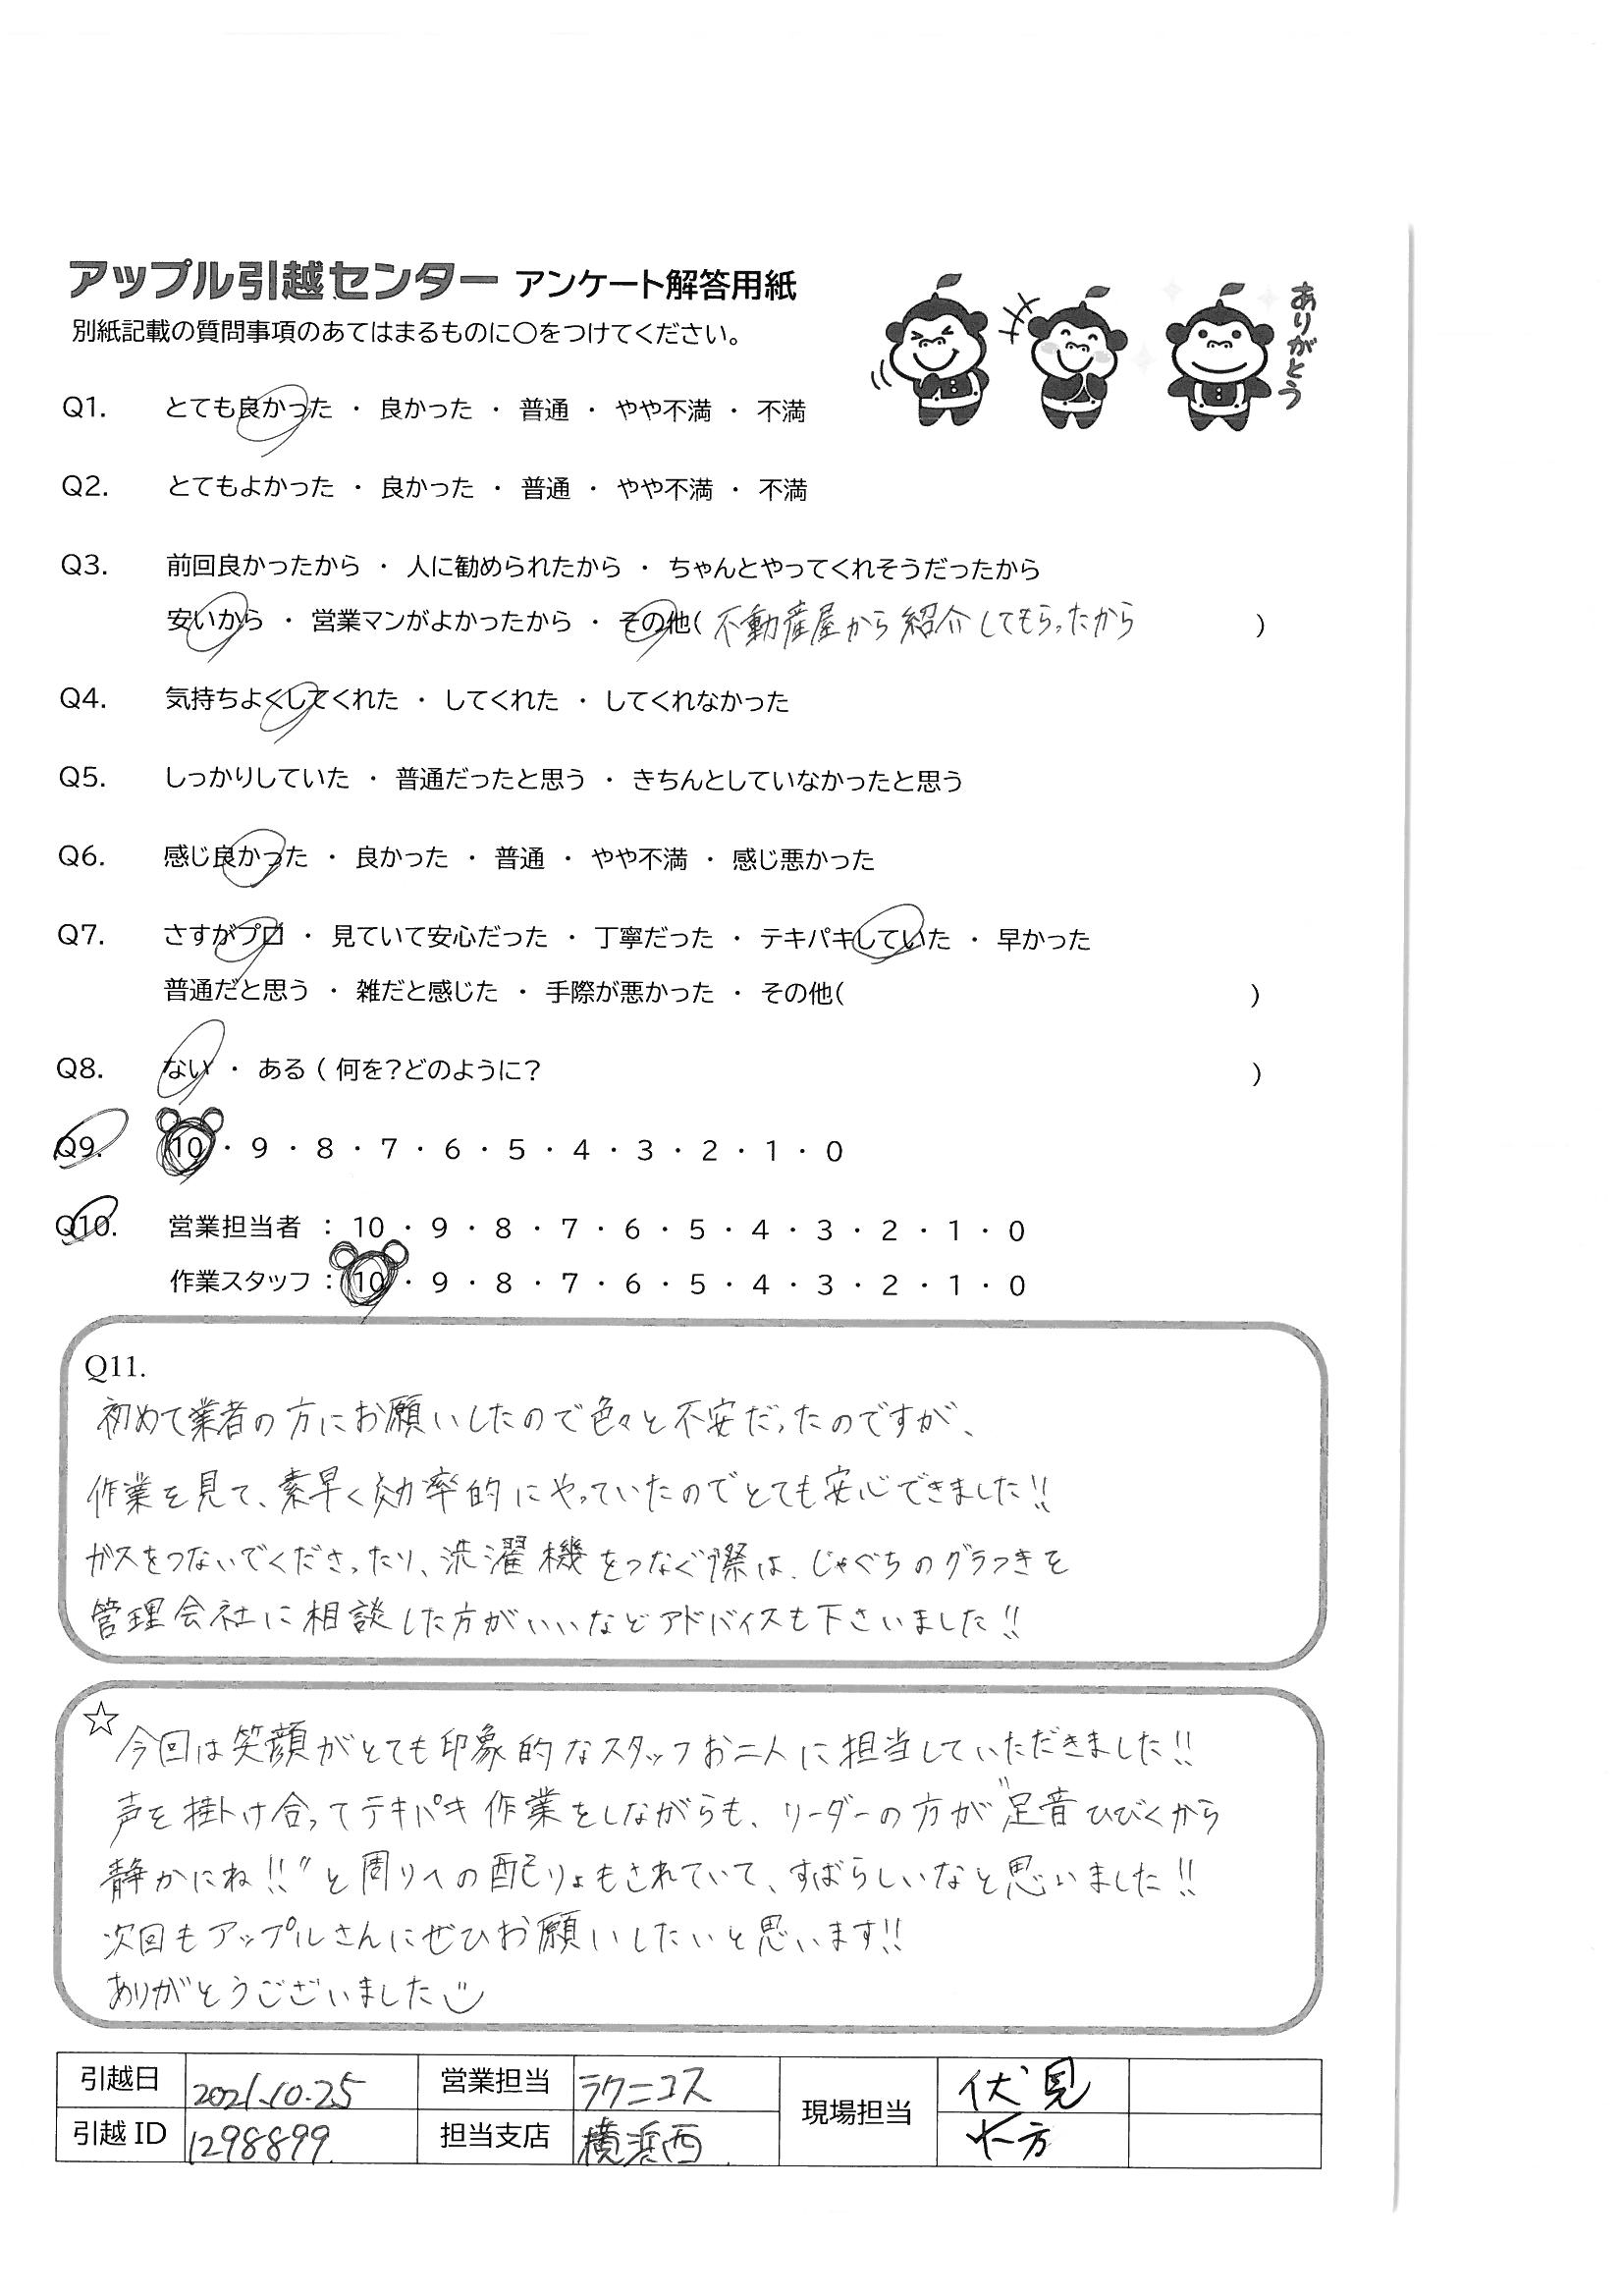 アップル引越センター アンケート解答用紙
別紙記載の質問事項のあてはまるものに○をつけてください。
ありがとう
Q1. とても良かった ・ 良かった ・ 普通 ・ やや不満 ・ 不満
Q2. とてもよかった ・ 良かった ・ 普通 ・ やや不満 ・ 不満
Q3. 前回良かったから ・ 人に勧められたから ・ ちゃんとやってくれそうだったから
安いから ・ 営業マンがよかったから ・ その他( 不動産屋から紹介してもらったから )
Q4. 気持ちよくしてくれた ・ してくれた ・ してくれなかった
Q5. しっかりしていた ・ 普通だったと思う ・ きちんとしていなかったと思う
Q6. 感じ良かった ・ 良かった ・ 普通 ・ やや不満 ・ 感じ悪かった
Q7. さすがプロ ・ 見ていて安心だった ・ 丁寧だった ・ テキパキしていた ・ 早かった
普通だと思う ・ 雑だと感じた ・ 手際が悪かった ・ その他( )
Q8. ない ・ ある ( 何を?どのように? )
Q9. 10 ・ 9 ・ 8 ・ 7 ・ 6 ・ 5 ・ 4 ・ 3 ・ 2 ・ 1 ・ 0
Q10. 営業担当者 : 10 ・ 9 ・ 8 ・ 7 ・ 6 ・ 5 ・ 4 ・ 3 ・ 2 ・ 1 ・ 0
作業スタッフ : 10 ・ 9 ・ 8 ・ 7 ・ 6 ・ 5 ・ 4 ・ 3 ・ 2 ・ 1 ・ 0
Q11.
初めて業者の方にお願いしたので色々と不安だったのですが、
作業を見て、素早く効率的にやっていたのでとても安心できました!!
ガスをつないでくださったり、洗濯機をつなぐ際は、じゃぐちのグラつきを
管理会社に相談した方がいいなどアドバイスも下さいました!!
☆ 今回は笑顔がとても印象的なスタッフお二人に担当していただきました!!
声を掛け合ってテキパキ作業をしながらも、リーダーの方が"足音ひびくから
静かにね!!"と周りへの配りょもされていて、すばらしいなと思いました!!
次回もアップルさんにぜひお願いしたいと思います!!
ありがとうございました
引越日 2021.10.25 営業担当 ラクニコス 現場担当 伏見
引越 ID 1298899. 担当支店 横浜西 方